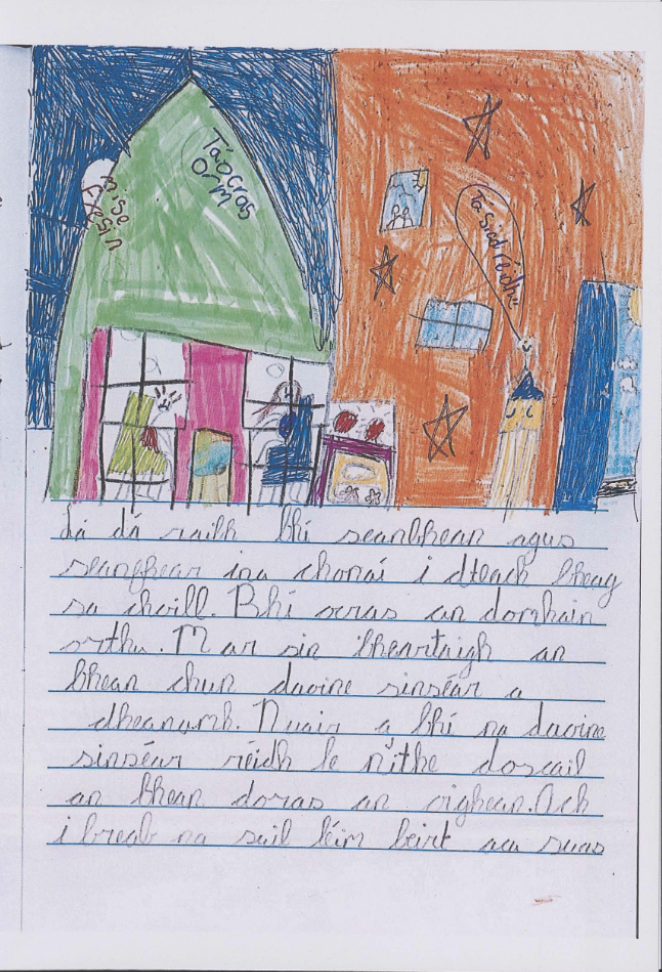 Tá ocras
orm
mise
freisin
Tá siad réidh
Lá dá raibh bhí seanbhean agus
seanfhear ina chonaí i dteach bheag
sa choill. Bhí ocras an domhain
orthu. Mar sin bheartaigh an
bhean chun daoine sinséar a
dheanamh. Nuair a bhí na daoine
sinséar réidh le n'ithe doscail
an bhean doras an oighean. Ach
i breab na suil léim beirt acu suas